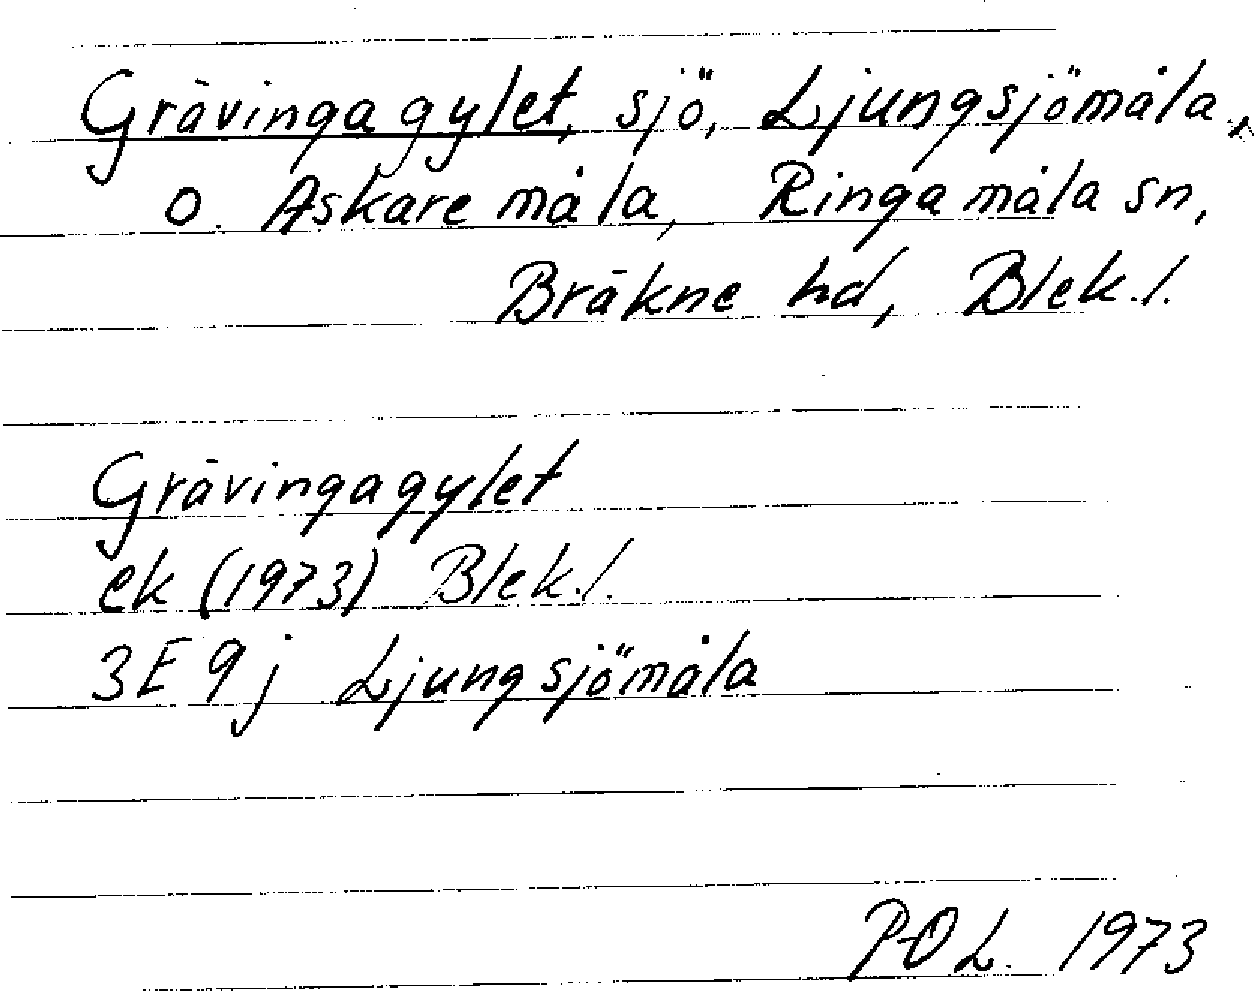 Grävingagylet, sjö, Ljungsjömåla
o. Askaremåla, Ringamåla sn,
Bräkne hd, Blek. l.
Grävingagylet
ek (1973) Blek. l.
3E 9j Ljungsjömåla
P-O L. 1973